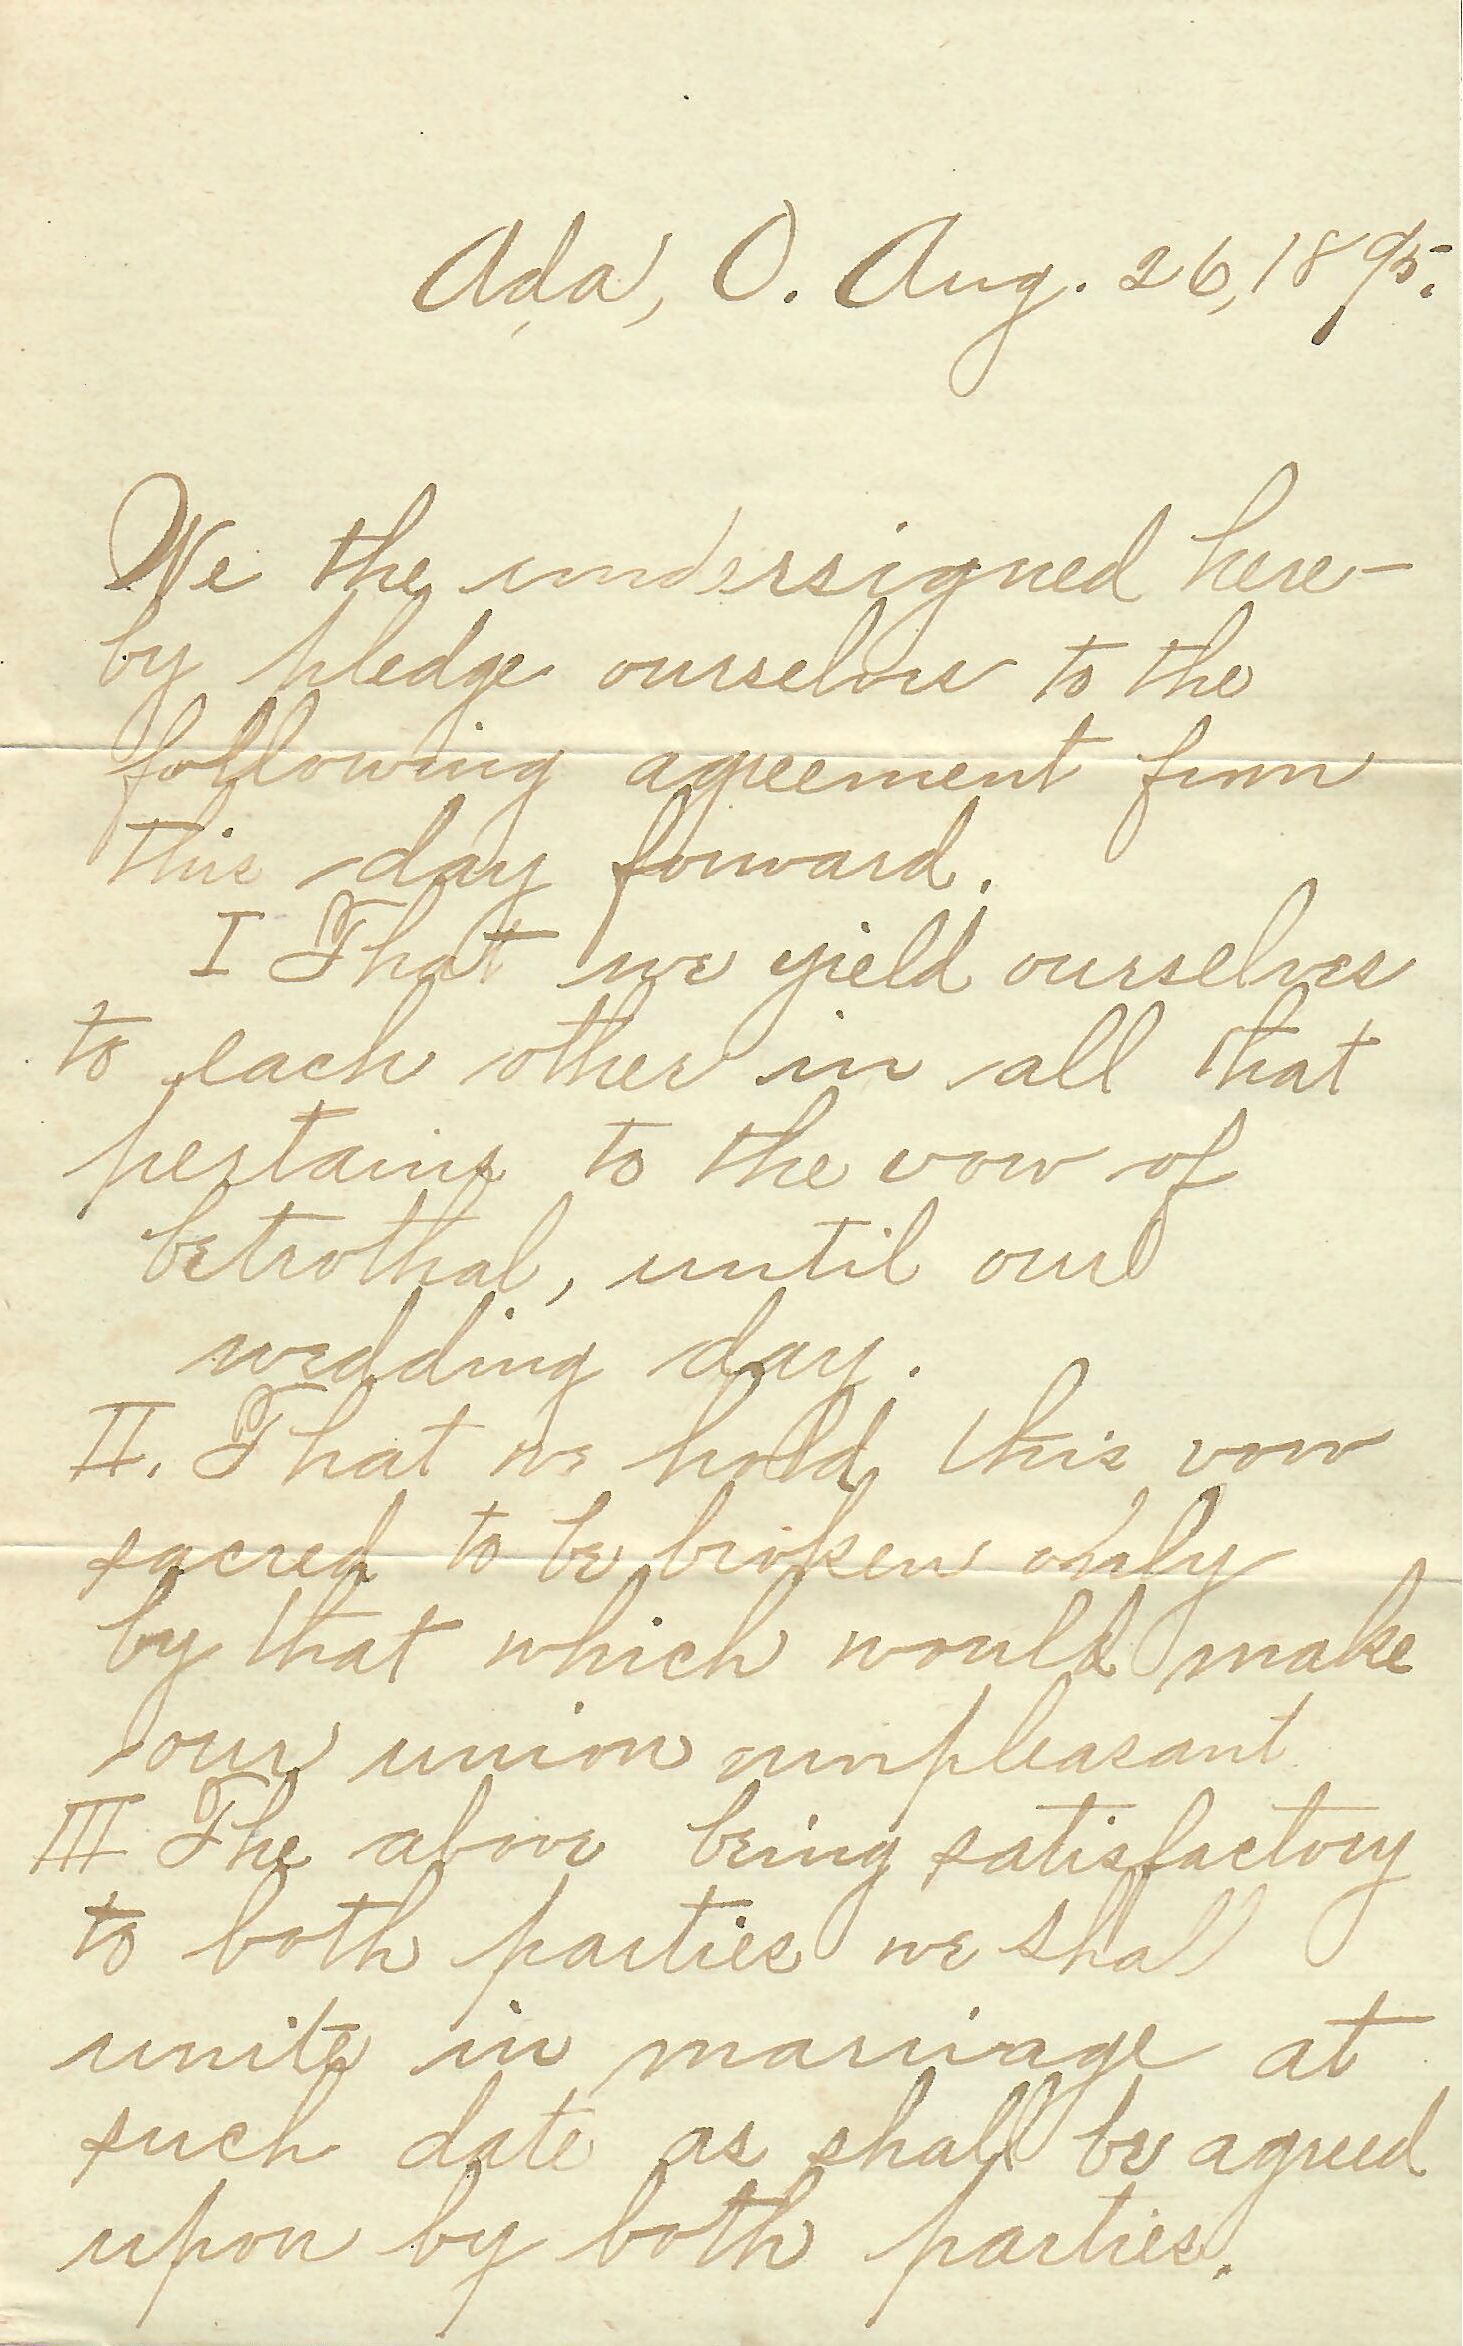 Ada, O. Aug. 26, 1895.
We the undersigned here-
by pledge ourselves to the
following agreement from
this day forward.
I That we yield ourselves
to each other in all that
pertains to the vow of
betrothal, until our
wedding day.
II. That we hold this vow
sacred to be broken only
by that which would make
our union unpleasant
III The above being satisfactory
to both parties we shall
unite in marriage at
such date as shall be agreed
upon by both parties.